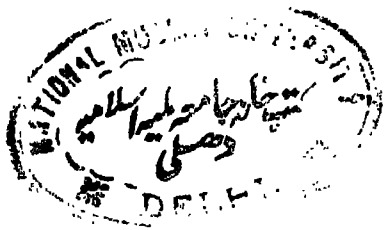 NATIONAL MUSLIM UNIVERSITY
جامعہ ملیہ اسلامیہ
دہلی
DELHI